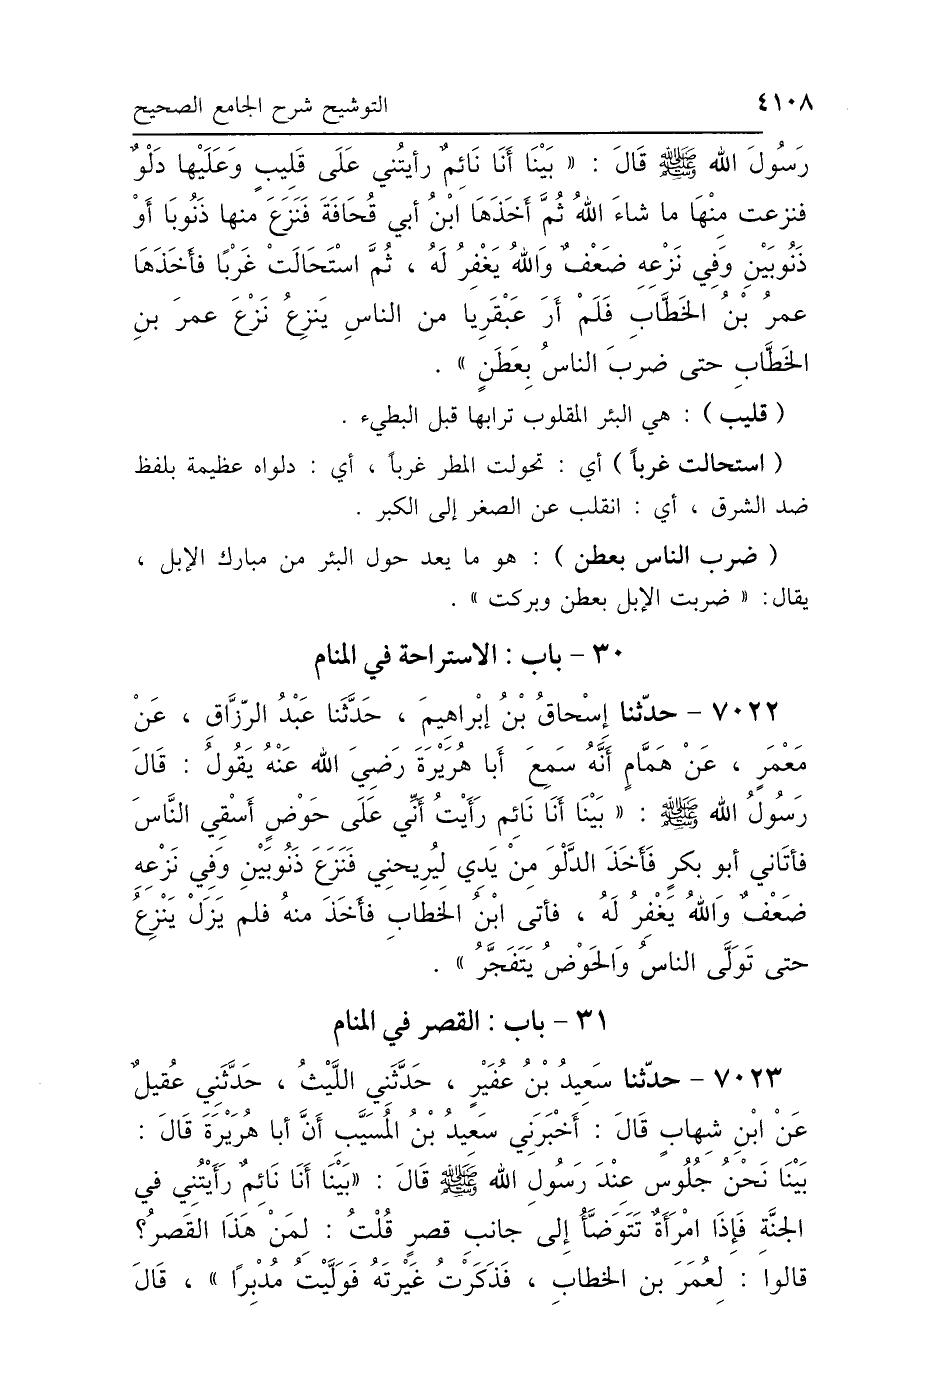 ٤١٠٨ التوشيح شرح الجامع الصحيح
رَسُولَ الله ﷺ قَالَ : « بَيْنَا أَنَا نَائِمٌ رأيتُني عَلَى قَلِيبٍ وَعَلَيْها دَلْوٌ
فنزعت مِنْهَا ما شاءَ اللهُ ثُمَّ أخَذَهَا ابْنُ أبي قُحَافَةَ فَنَزَعَ منها ذَنُوبَا أوْ
ذَنُوبَيْنِ وَفِي نَزْعِهِ ضَعْفٌ وَاللهُ يَغْفِرُ لَهُ ، ثُمَّ اسْتَحَالَتْ غَرْبًا فأخَذَهَا
عمرُ بْنُ الخَطَّابِ فَلَمْ أرَ عَبْقَرِيا من الناسِ يَنزِعُ نَزْعَ عمرَ بنِ
الخَطَّابِ حتى ضربَ الناسُ بِعَطَنٍ » .
( قليب ) : هي البئر المقلوب ترابها قبل البطيء .
( استحالت غرباً ) أي : تحولت المطر غرباً ، أي : دلواه عظيمة بلفظ
ضد الشرق ، أي : انقلب عن الصغر إلى الكبر .
( ضرب الناس بعطن ) : هو ما يعد حول البئر من مبارك الإبل ،
يقال: « ضربت الإبل بعطن وبركت » .
٣٠ – باب : الاستراحة في المنام
٧٠٢٢ – حدّثنا إسْحاقُ بْنُ إبْراهِيمَ ، حَدَّثَنا عَبْدُ الرّزَّاقِ ، عَنْ
مَعْمَرٍ ، عَنْ هَمَّامٍ أنَّهُ سمَعِ أبا هُرَيْرَةَ رَضِيَ الله عَنْهُ يَقُولُ : قَالَ
رَسُولُ الله ﷺ : « بَيْنَا أنَا نَائِم رَأَيْتُ أنِّي عَلَى حَوْضٍ أسْقِي النَّاسَ
فأتَاني أبو بكرٍ فَأخَذَ الدَّلْوَ مِنْ يَدِي لِيُرِيحني فَنَزَعَ ذَنُوبَيْنِ وَفِي نَزْعِهِ
ضَعْفٌ وَاللهُ يَغْفِرُ لَهُ ، فأتى ابْنُ الخطابِ فأخَذَ منهُ فلم يَزَلْ يَنْزِعُ
حتى تَوَلَّى الناسُ وَالحَوْضُ يَتَفَجَّرُ » .
٣١ – باب : القصر في المنام
٧٠٢٣ – حدّثنا سَعِيدُ بْنُ عُفَيْرٍ ، حَدَّثَنِي اللَّيْثُ ، حَدَّثَنِي عقيلٌ
عَنْ ابْنِ شهابٍ قَالَ : أخْبَرَنِي سعِيدُ بْنُ المُسيَّبِ أنَّ أبا هُرَيْرَةَ قَالَ :
بَيْنَا نَحْنُ جُلُوس عِنْدَ رَسُولِ الله ﷺ قَالَ : «بَيْنَا أنا نَائِمٌ رَأيْتُني في
الجنَّةِ فَإِذَا امْرَأةٌ تَتَوَضَّأُ إلى جانِبِ قصرٍ قُلْتُ : لمَنْ هَذَا القَصرُ؟
قالوا : لِعُمَرَ بن الخطابِ ، فَذَكَرْتُ غَيْرتَهُ فَوَلَّيْت مُدْبِرًا » ، قَالَ